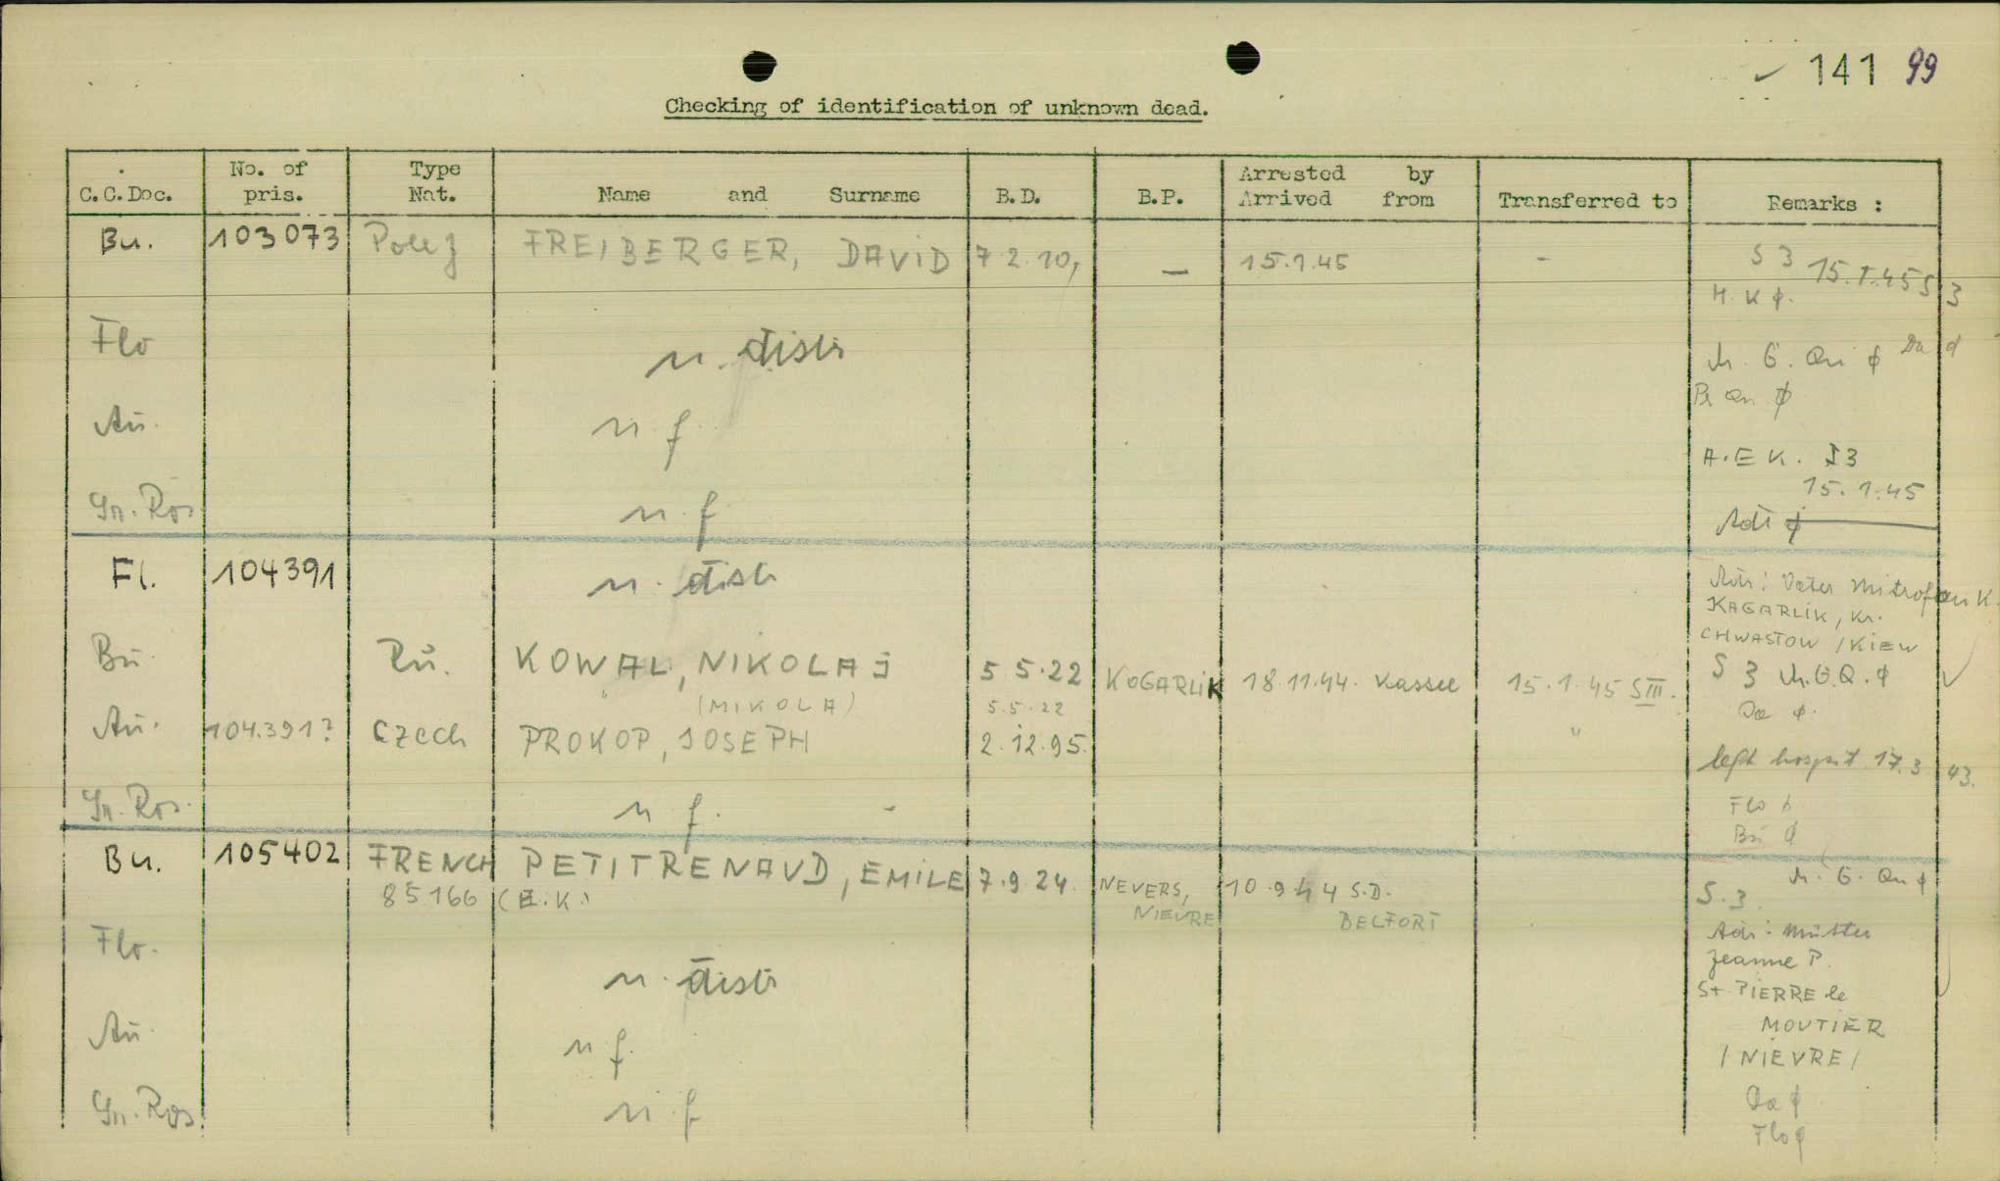 141 99
Checking of identification of unknown dead.
C.C.Doc. No. of pris. Type Nat. Name and Surname B.D. B.P. Arrested by Arrived from Transferred to Remarks :
Bu. 103073 Pole J FREIBERGER, DAVID 7.2.10, — 15.1.45 - S 3 15.1.45 S 3
H. K ϕ.
Flo n. distr Da ϕ
Au. n f
A.E K. S3
15.1.45
Gr. Ros n. f Adr ϕ
Fl. 104391 n. distr Adr: Vater Mitrofan K.
KAGARLIK, Kr.
CHWASTOW / KIEW
Bu. Ru. KOWAL, NIKOLAJ 5 5.22 KOGARLIK 18.11.44. Kassel 15.1.45 SIII. S 3
(MIKOLA) 5.5.22 Da ϕ.
Au. 104.391? Czech PROKOP, JOSEPH 2.12.95. "
left hospit 17.3 43.
Gr. Ros. n f. - Flo ϕ
Bu ϕ
Bu. 105402 FRENCH PETITRENAUD, EMILE 7.9.24. NEVERS, 10.9.44 S.D. S.3.
85166 (Z.K.) NIEVRE BELFORT
Flo. n. distr Adr: Mutter
Jeanne P.
St PIERRE le
MOUTIER
Au n f. / NIEVRE /
Gr. Ros. n. f Da ϕ
Flo ϕ